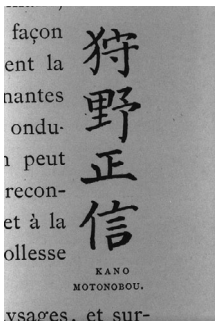 façon
ent la
nantes
ondu-
peut
recon-
et à la
ollesse
狩野正信
KANO
MOTONOBU.
ysages, et sur-